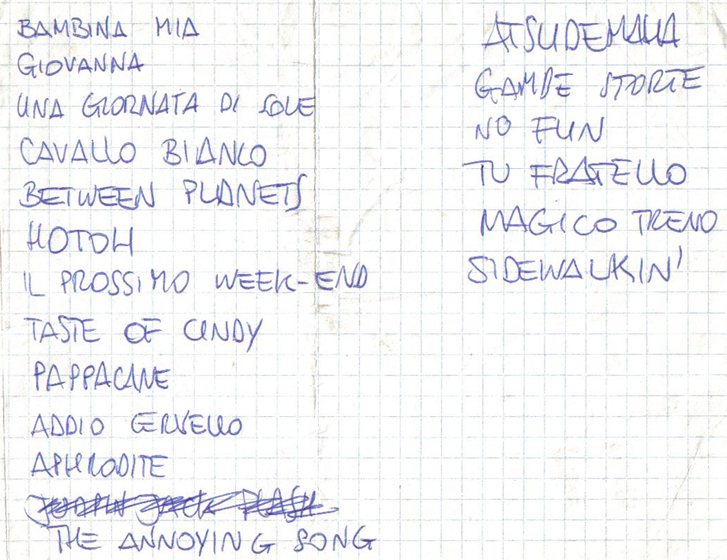 BAMBINA MIA
GIOVANNA
UNA GIORNATA DI SOLE
CAVALLO BIANCO
BETWEEN PLANETS
HOTOH
IL PROSSIMO WEEK-END
TASTE OF CINDY
PAPPACANE
ADDIO CERVELLO
APHRODITE
JUMPIN JACK FLASH
THE ANNOYING SONG
ATSUDEMAHA
GAMBE STORTE
NO FUN
TU FRATELLO
MAGICO TRENO
SIDEWALKIN'